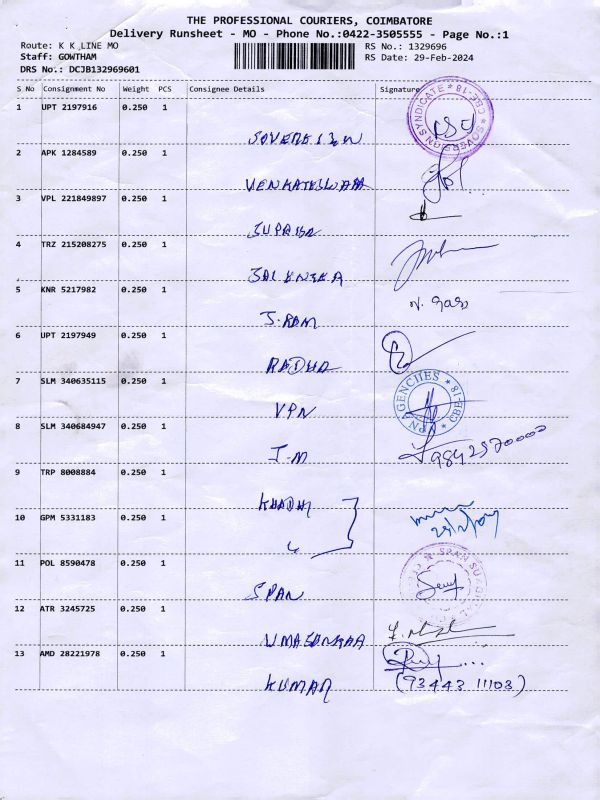 THE PROFESSIONAL COURIERS, COIMBATORE
Delivery Runsheet - MO - Phone No.:0422-3505555 - Page No.:1
Route: K K LINE MO
RS No.: 1329696
Staff: GOWTHAM
RS Date: 29-Feb-2024
DRS No.: DCJB132969601
S No Consignment No Weight PCS Consignee Details Signature
1 UPT 2197916 0.250 1
SOVEREIGN SYNDICATE * CBE-18 *
2 APK 1284589 0.250 1
3 VPL 221849897 0.250 1
SUPRIYA
4 TRZ 215208275 0.250 1
5 KNR 5217982 0.250 1
J.RAM
6 UPT 2197949 0.250 1
RADHA
7 SLM 340635115 0.250 1
VPN
VPN AGENCIIES * CBE-18 *
8 SLM 340684947 0.250 1
J-M
9 TRP 8008884 0.250 1
10 GPM 5331183 0.250 1
11 POL 8590478 0.250 1
SPAN
12 ATR 3245725 0.250 1
13 AMD 28221978 0.250 1
KUMAR (93443 11103)